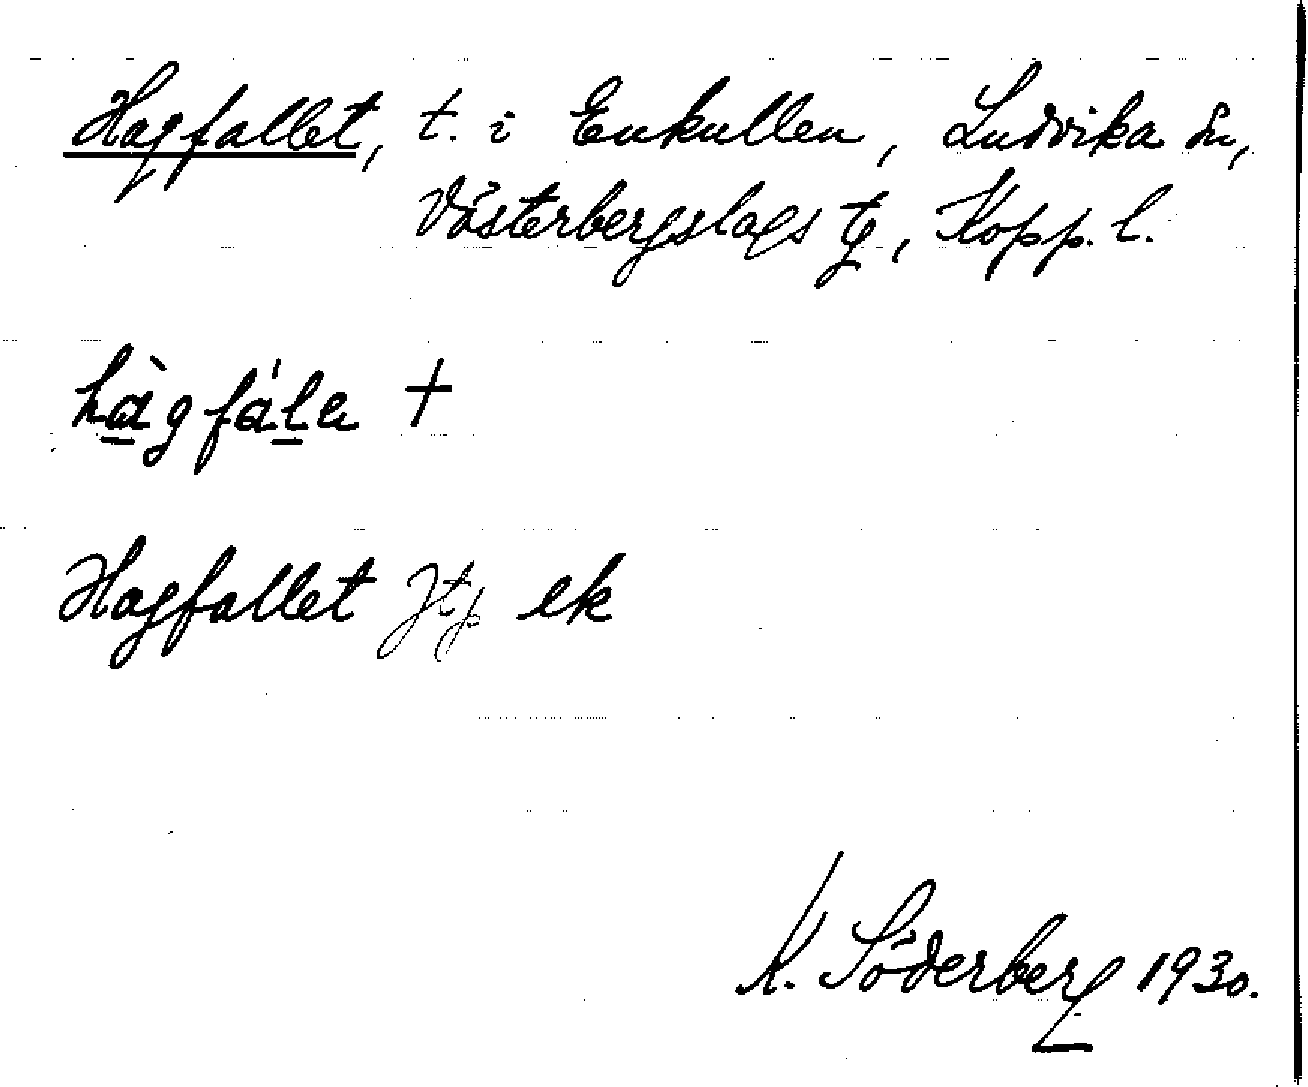 Hagfallet, t. i Enkullen, Ludvika sn,
Västerbergslags tg, Kopp. l.
hàgfála +
Hagfallet Jtp ek
K. Söderberg 1930.